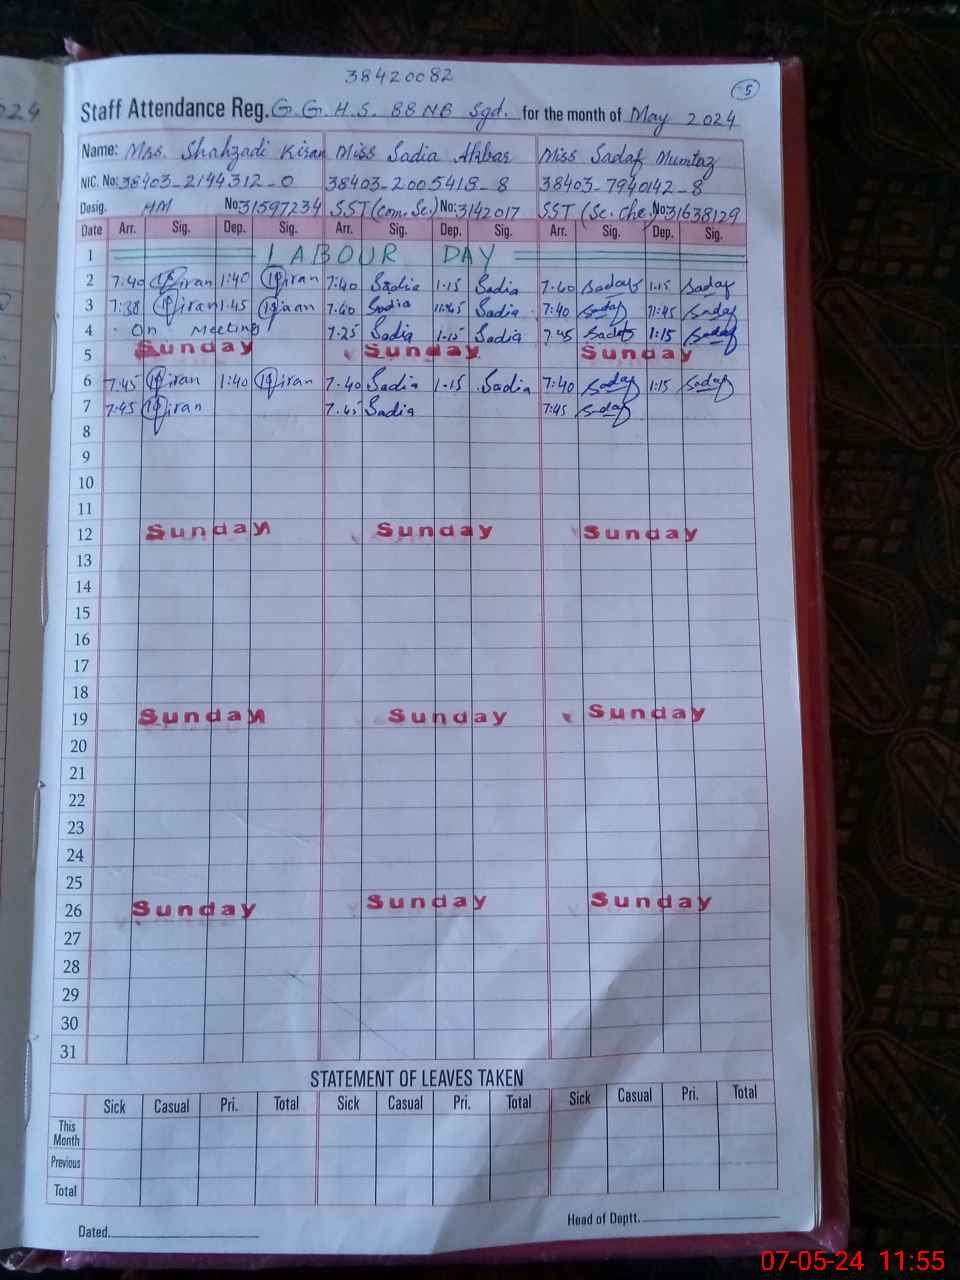 38420082
5
024
Staff Attendance Reg. G.G.H.S. 88 NB Sgd. for the month of May 2024
Name: Mrs. Shahzadi Kiran Miss Sadia Akbar Miss Sadaf Mumtaz
NIC. No: 38403-2144312-0 38403-2005418-8 38403-7940142-8
Desig. HM No: 31597234 SST (Com. Sc.) No: 3142017 SST (Sc. Che.) No: 31638129
Date Arr. Sig. Dep. Sig. Arr. Sig. Dep. Sig. Arr. Sig. Dep. Sig.
1 LABOUR DAY
2 7:40 Kiran 1:40 Kiran 7:40 Sadia 1:15 Sadia 7:40 Sadaf 1:15 Sadaf
3 7:38 Kiran 1:45 Kiran 7:40 Sadia 11:45 Sadia 7:40 Sadaf 11:45 Sadaf
4 On Meeting 7:25 Sadia 1:15 Sadia 7:45 Sadaf 1:15 Sadaf
5 Sunday Sunday Sunday
6 7:45 Kiran 1:40 Kiran 7:40 Sadia 1:15 Sadia 7:40 Sadaf 1:15 Sadaf
7 7:45 Kiran 7:45 Sadia 7:45 Sadaf
8
9
10
11
12 Sunday Sunday Sunday
13
14
15
16
17
18
19 Sunday Sunday Sunday
20
21
22
23
24
25
26 Sunday Sunday Sunday
27
28
29
30
31
STATEMENT OF LEAVES TAKEN
Sick Casual Pri. Total Sick Casual Pri. Total Sick Casual Pri. Total
This Month
Previous
Total
Dated. Head of Deptt.
07-05-24 11:55